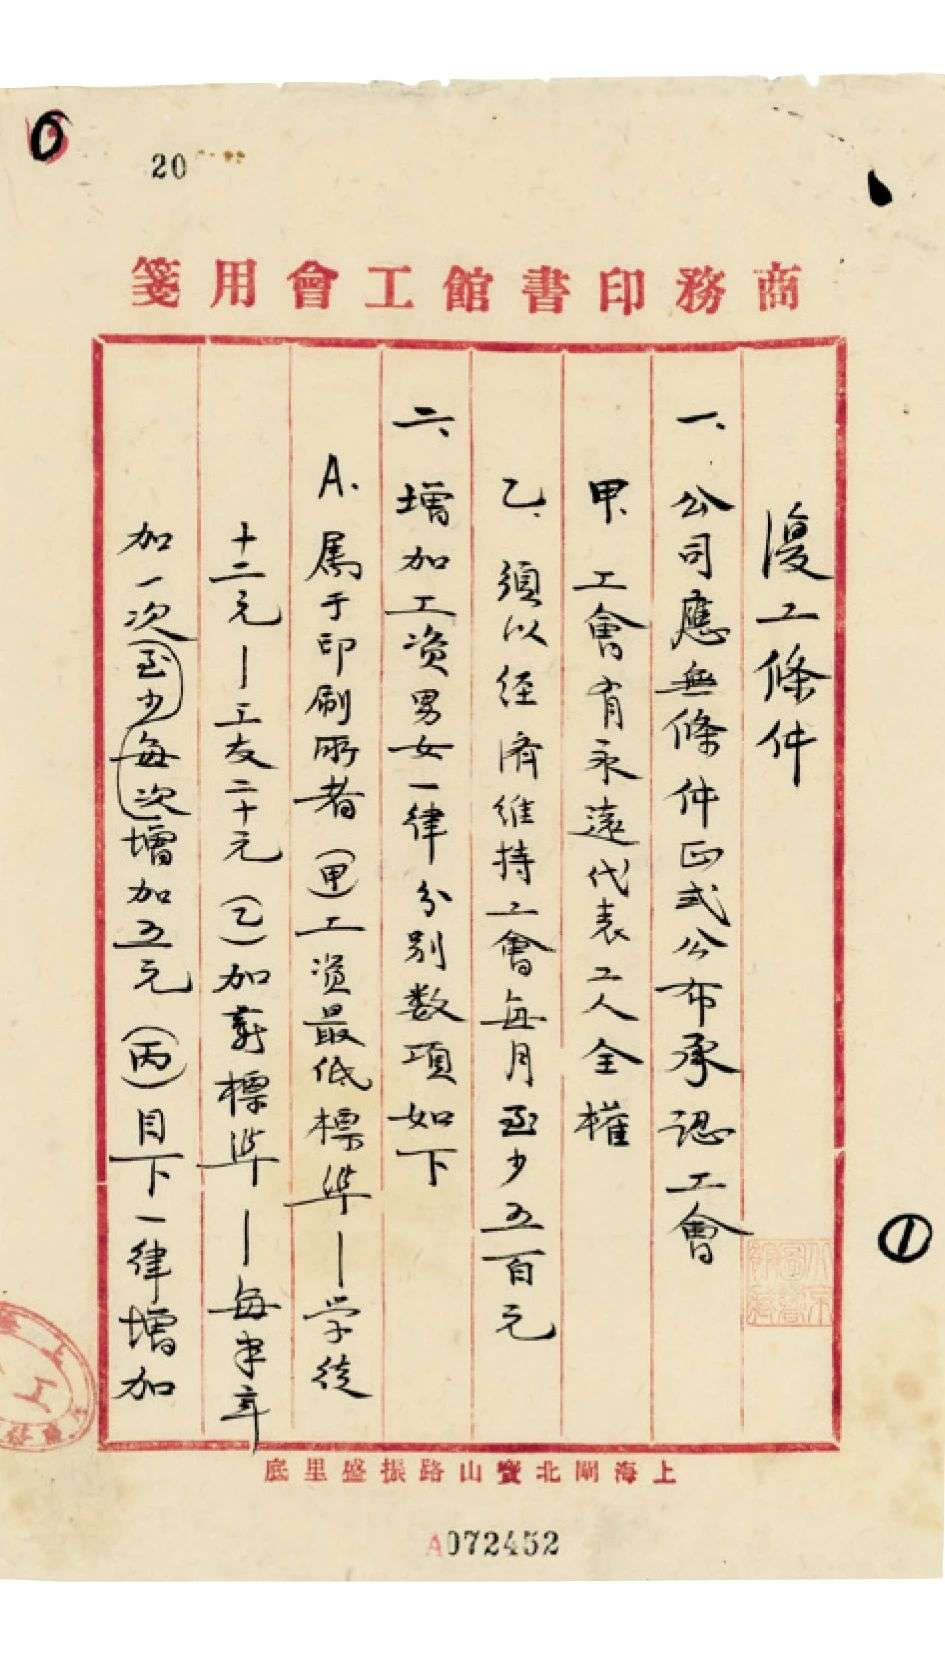 20
商務印書館工會用箋
復工條件
一、公司應無條件正式公布承認工會
甲、工會有永遠代表工人全權
乙、須以经濟维持工會每月至少五百元
二、增加工资男女一律分别数項如下
A.属于印刷所者（甲）工资最低標準—学徒
十二元—工友二十元（乙）加薪標準—每半年
加一次至少每次增加五元（丙）目下一律增加
①
上海閘北寶山路振盛里底
A072452